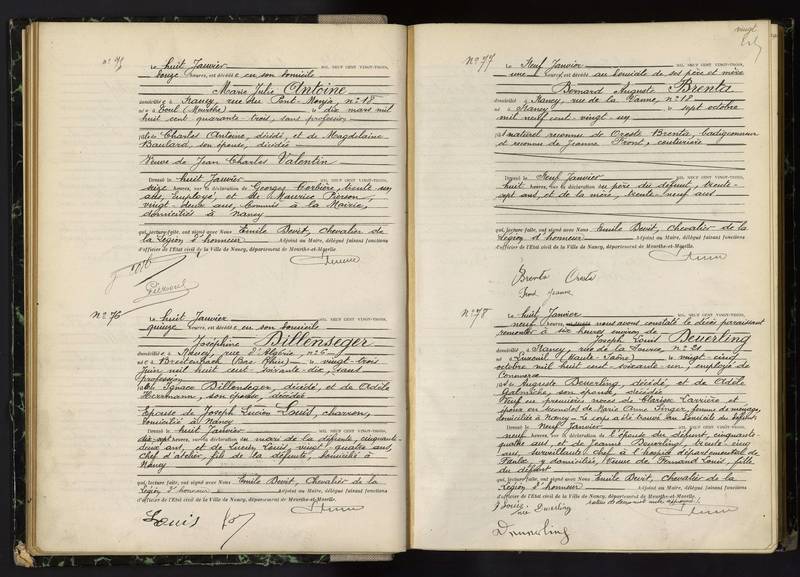 Le huit Janvier MIL NEUF CENT VINGT-TROIS,
heures, est décédé e en son domicile
Marie Julie Antoine
domicilié e à Nancy, rue du Pont-Mouja, n° 18
né e à Toul (Meurthe) le dix mars mil
huit cent quarante trois, sans profession
fille de Charles Antoine, décédé, et de Magdelaine
Baulard, son épouse, décédée
Veuve de Jean Charles Valentin
Dressé le huit Janvier MIL NEUF CENT VINGT-TROIS,
seize heures, sur la déclaration de Georges Corbière, trente un
ans, Employé, et de Maurice Pierson,
vingt-deux ans, Commis à la Mairie,
domiciliés à Nancy
qui, lecture faite, ont signé avec Nous Emile Devit, Chevalier de
la Légion d'honneur Adjoint au Maire, délégué faisant fonctions
d'officier de l'État civil de la Ville de Nancy, département de Meurthe-et-Moselle.
N° 76
Le huit Janvier MIL NEUF CENT VINGT-TROIS,
quinze heures, est décédé e en son domicile
Joséphine Billenseger
domicilié e à Nancy, rue d'Algérie, n° 6
né e à Breitenbach (Bas Rhin) le vingt-trois
Juin mil huit cent soixante-dix, sans
profession
fille de Ignace Billenseger, décédé, et de Adèle
Herrmann, son épouse, décédée
Epouse de Joseph Lucien Louis, charron,
domicilié à Nancy
Dressé le huit Janvier MIL NEUF CENT VINGT-TROIS,
dix-sept heures, sur la déclaration du mari de la défunte, cinquante-
deux ans, et de Lucien Louis, vingt quatre ans,
chef d'atelier, fils de la défunte, domicilié à
Nancy
qui, lecture faite, ont signé avec Nous Emile Devit, Chevalier de la
Légion d'honneur Adjoint au Maire, délégué faisant fonctions
d'officier de l'État civil de la Ville de Nancy, département de Meurthe-et-Moselle.
Louis
vingt
N° 77
Le Neuf Janvier MIL NEUF CENT VINGT-TROIS,
une heures, est décédé au domicile de ses père et mère
Bernard Auguste Brenta
domicilié à Nancy, rue de la Vanne, n° 18
né à Nancy le sept octobre
mil neuf cent vingt-un
fils naturel reconnu de Oreste Brenta, badigeonneur
et reconnu de Jeanne Front, couturière
Dressé le Neuf Janvier MIL NEUF CENT VINGT-TROIS,
huit heures, sur la déclaration du père du défunt, trente-
sept ans, et de la mère, trente-neuf ans
qui, lecture faite, ont signé avec Nous Emile Devit, Chevalier de la
Légion d'honneur Adjoint au Maire, délégué faisant fonctions
d'officier de l'État civil de la Ville de Nancy, département de Meurthe-et-Moselle.
Brenta Oreste
Front Jeanne
N° 78
Le huit Janvier MIL NEUF CENT VINGT-TROIS,
neuf heures, nous avons constaté le décès paraissant
remonter à six heures environ de
Joseph Louis Deuerling
domicilié à Nancy, rue de la Source, n° 21
né à Luxeuil (Haute-Saône) le vingt-cinq
octobre mil huit cent soixante un, employé de
Commerce
fils de Auguste Deuerling, décédé, et de Adèle
Galmiche, son épouse, décédée
Veuf en premières noces de Clarisse Carrière et
époux en secondes de Marie Anne Singer, femme de ménage,
domiciliée à Nancy. Le corps a été trouvé au domicile du défunt.
Dressé le Neuf Janvier MIL NEUF CENT VINGT-TROIS,
neuf heures, sur la déclaration de l'épouse du défunt, cinquante-
quatre ans, et de Jeanne Deuerling, trente cinq
ans, surveillante chef à l'hospice départemental de
y domiciliée, Veuve de Fernand Louis, fille
du défunt
qui, lecture faite, ont signé avec Nous Emile Devit, Chevalier de la
Légion d'honneur Adjoint au Maire, délégué faisant fonctions
d'officier de l'État civil de la Ville de Nancy, département de Meurthe-et-Moselle.
J Louis
née Deuerling
Deuerling